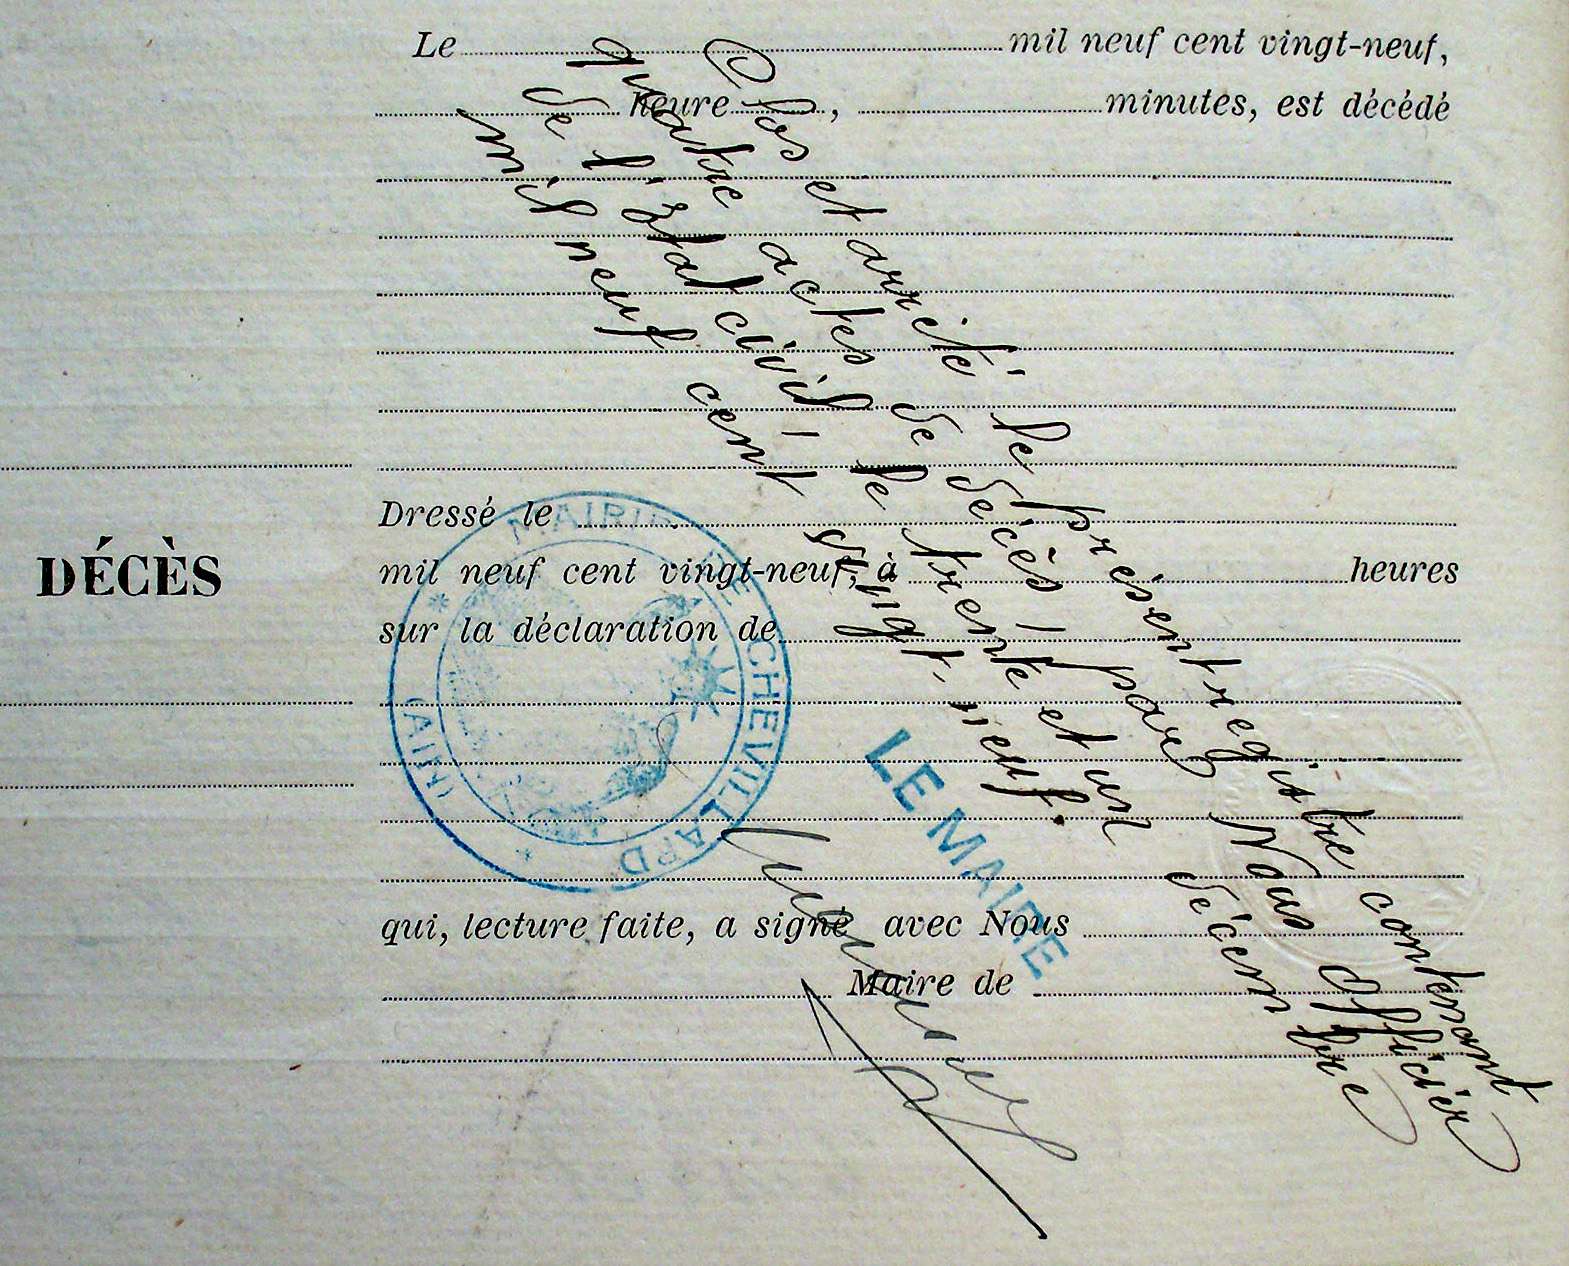 Le mil neuf cent vingt-neuf,
heure , minutes, est décédé
DÉCÈS
Dressé le
mil neuf cent vingt-neuf, à heures
sur la déclaration de
qui, lecture faite, a signé avec Nous
Maire de
Clos et arrêté le présent registre contenant
quatre actes de décès, par Nous officier
de l'Etat civil, le trente et un décembre
mil neuf cent vingt-neuf.
MAIRIE DE CHEVILLARD
(AIN)
LE MAIRE